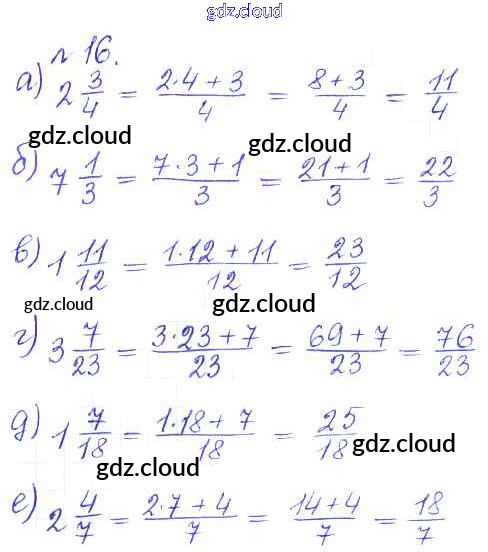 gdz.cloud
№ 16.
а) 2 3/4 = (2·4+3)/4 = (8+3)/4 = 11/4
gdz.cloud gdz.cloud
б) 7 1/3 = (7·3+1)/3 = (21+1)/3 = 22/3
в) 1 11/12 = (1·12+11)/12 = 23/12
gdz.cloud gdz.cloud
г) 3 7/23 = (3·23+7)/23 = (69+7)/23 = 76/23
д) 1 7/18 = (1·18+7)/18 = 25/18
gdz.cloud gdz.cloud
е) 2 4/7 = (2·7+4)/7 = (14+4)/7 = 18/7